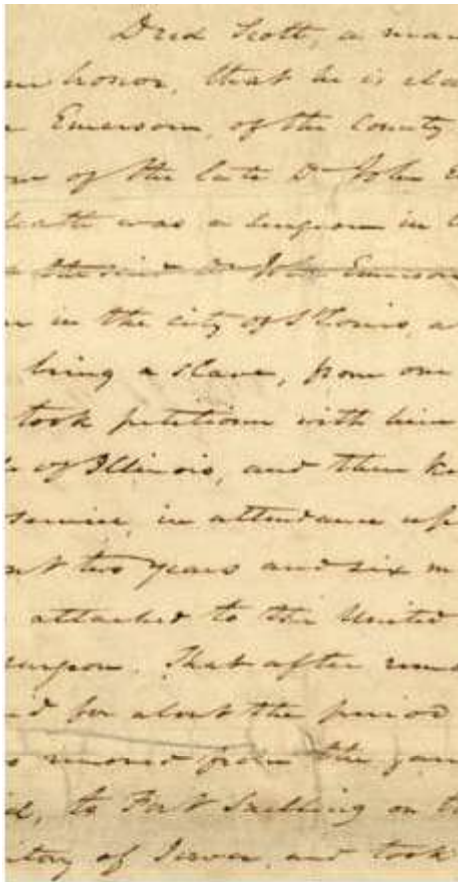 Dred Scott, a man
honor, that he is cla
Emerson, of the County
of the late Dr John E
death was a surgeon in
the said Dr John Emerson
in the city of St Louis, a
being a slave, from one
took petitioner with him
of Illinois, and then ke
service, in attendance up
two years and six m
attached to the United
surgeon. That after rema
d for about the period
removed from the gar
to Fort Snelling on t
itory of Iowa, and took